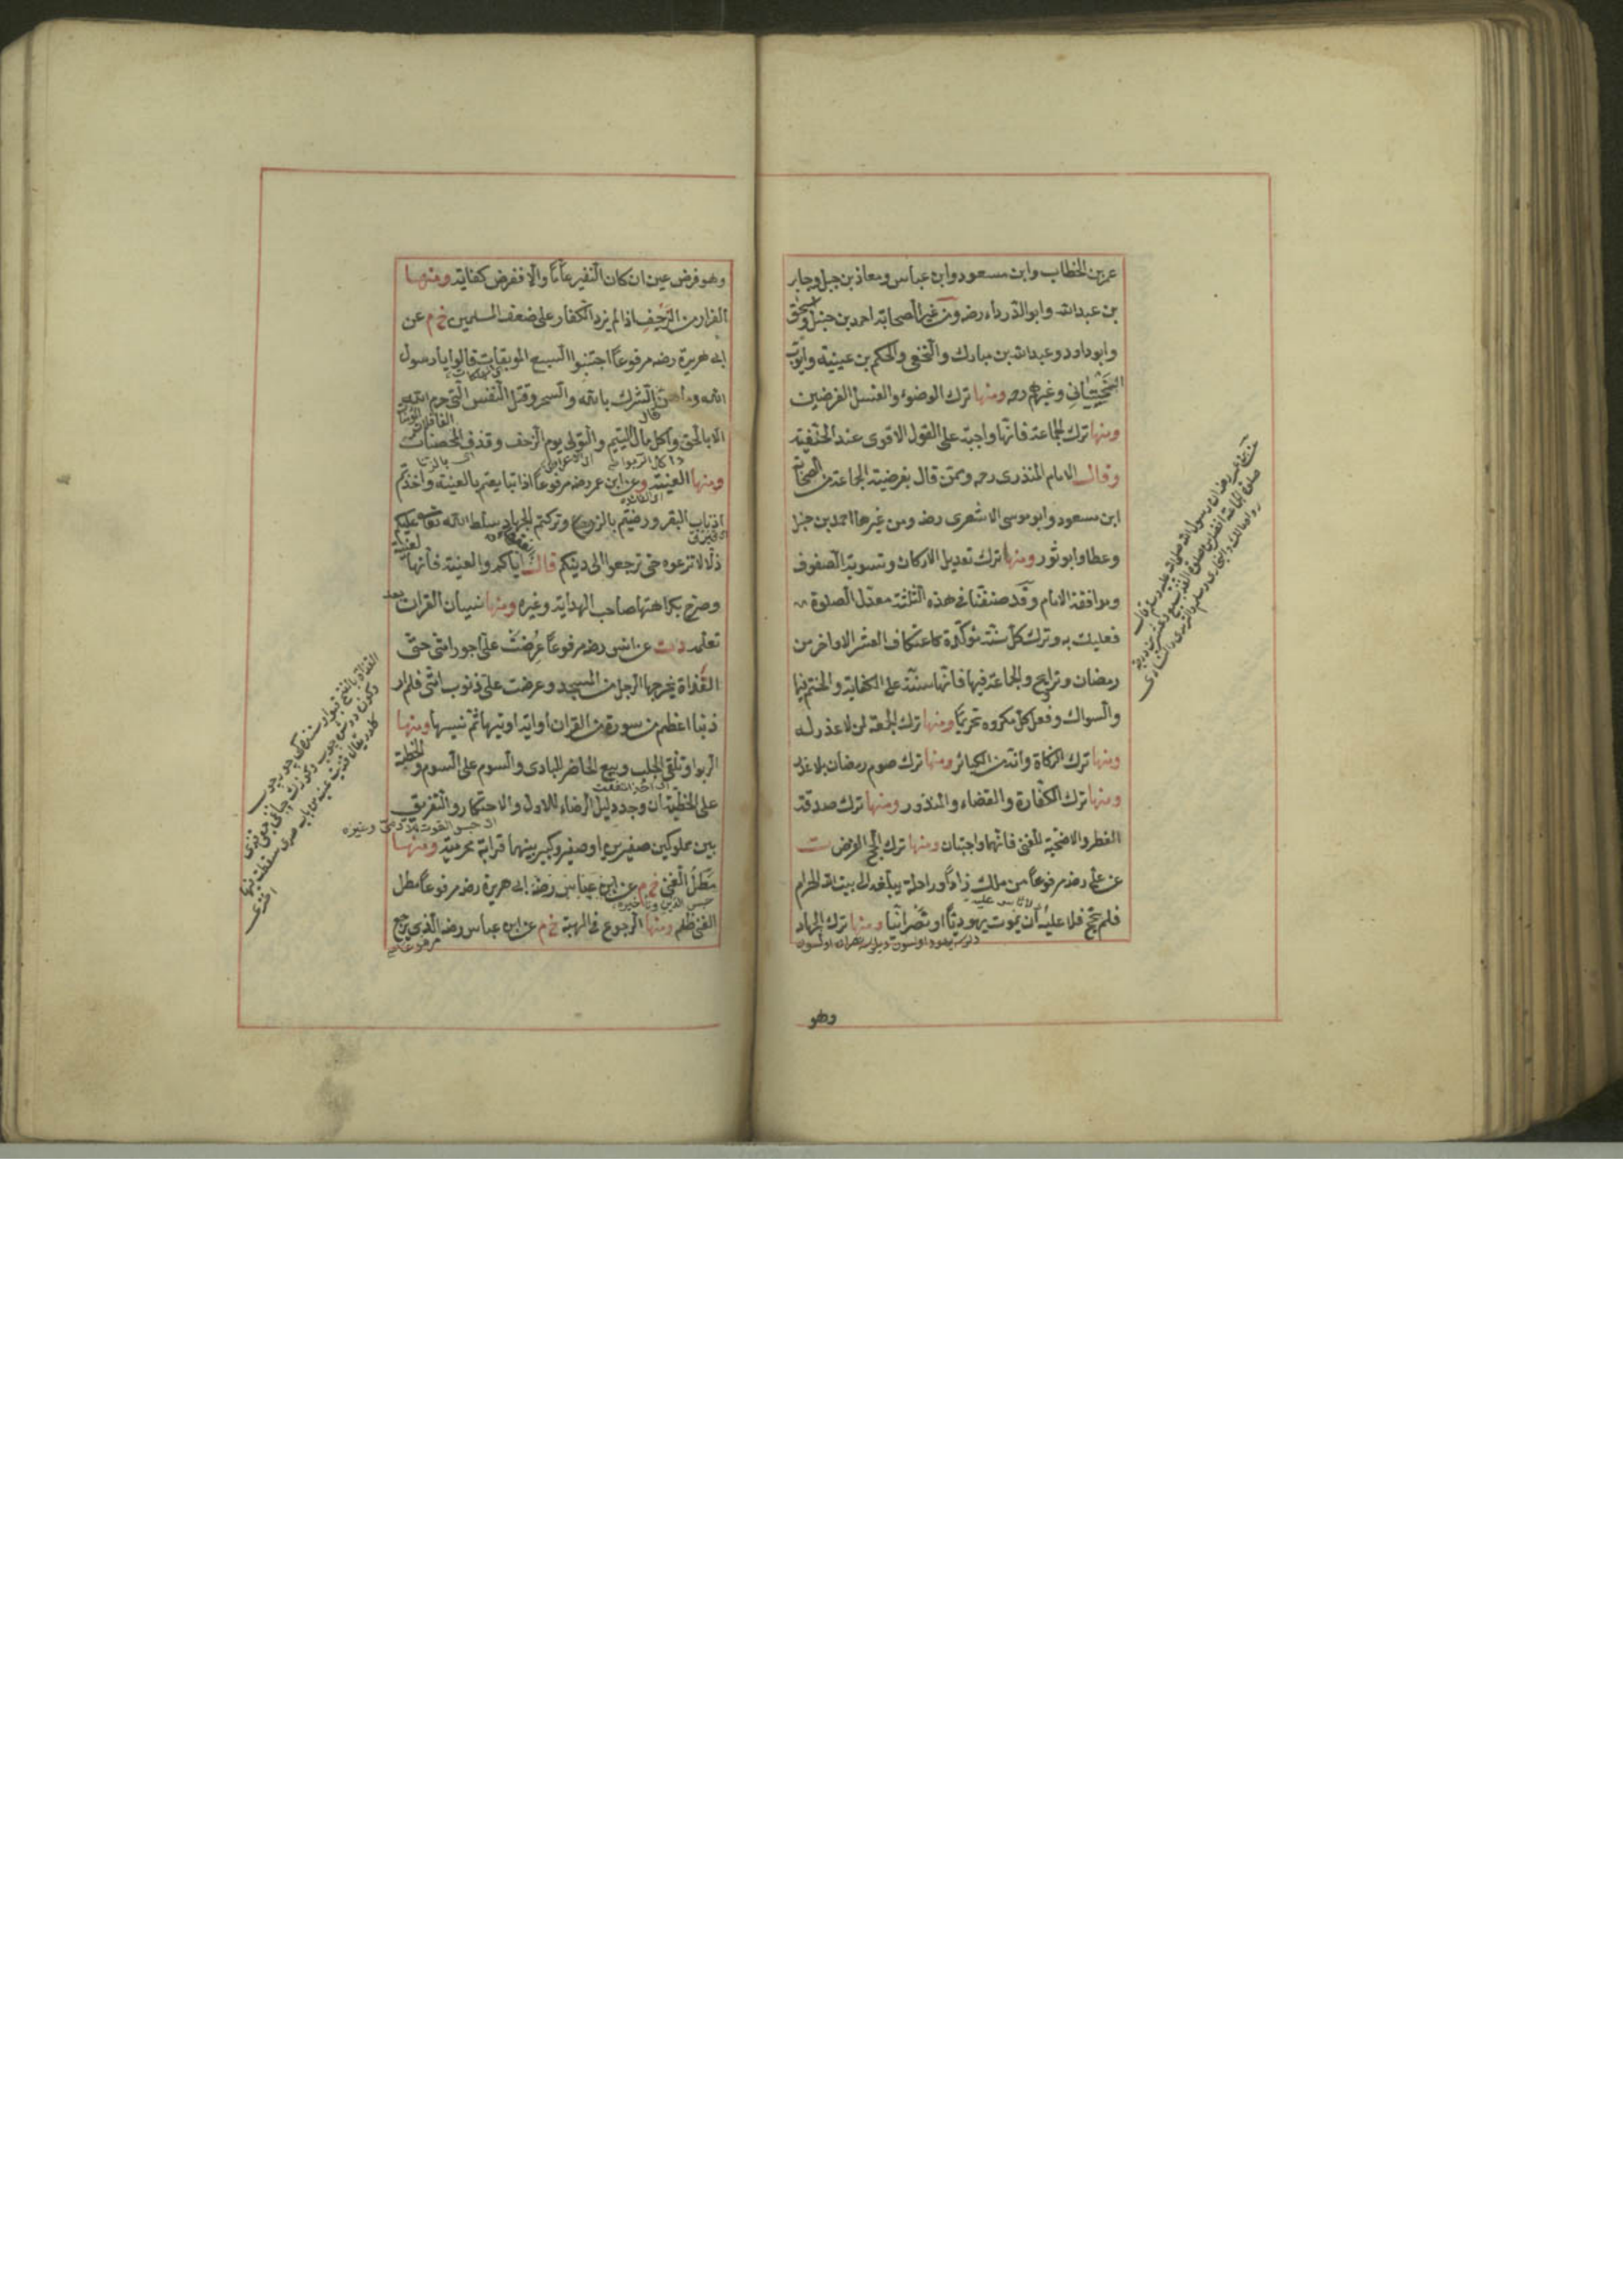 عمر بن الخطاب وابن مسعود وابن عباس ومعاذ بن جبل وجابر
بن عبد الله وابو الدرداء رضه ومن غير الصحابة احمد بن حنبل واسحق
وابو داود وعبد الله بن مبارك والنخعى والحكم بن عيينة وايوب
السختيانى وغيرهم رحه ومنها ترك الوضوء والغسل الفرضين
ومنها ترك الجماعة فانها واجبة على القول الاقوى عند الحنفية
وقال الامام المنذرى رحه وممن قال بفرضية الجماعة من الصحابة
ابن مسعود وابو موسى الاشعرى رضه ومن غيرهما احمد بن حنبل
وعطا وابو ثور ومنها ترك تعديل الاركان وتسوية الصفوف
وموافقة الامام وقد صنفنا فى هذه الثلثة معدل الصلوة
فعليك به وترك كل سنة مؤكدة كاعتكاف العشر الاواخر من
رمضان وتراويح والجماعة فيها فانها سنة على الكفاية والختم فيها
والسواك وفعل كل مكروه تحريما ومنها ترك الجمعة لمن لا عذر له
ومنها ترك الزكاة وانه من الكبائر ومنها ترك صوم رمضان بلا عذر
ومنها ترك الكفارة والقضاء والمنذور ومنها ترك صدقة
الفطر والاضحية للغنى فانهما واجبتان ومنها ترك الحج الفرض ت
عن على رضه مرفوعا من ملك زادا وراحلة يبلغه الى بيت الله الحرام
فلم يحج فلا عليه ان يموت يهوديا او نصرانيا ومنها ترك الجهاد
وهو
عن ابن عمر رضه ان رسول الله صلى الله عليه وسلم قال
صلوة الجماعة افضل من صلوة الفذ بسبع وعشرين درجة
رواه مالك والبخارى ومسلم والترمذى والنسائى
وهو فرض عين ان كان النفير عاما والا ففرض كفاية ومنها
الفرار من الزحف اذا لم يزد الكفار على ضعف المسلمين خ م عن
ابى هريرة رضه مرفوعا اجتنبوا السبع الموبقات قالوا يا رسول
الله وما هن قال الشرك بالله والسحر وقتل النفس التى حرم الله
الا بالحق واكل مال اليتيم والتولى يوم الزحف وقذف المحصنات
الغافلات
ومنها العينة وعن ابن عمر رضه مرفوعا اذا تبايعتم بالعينة واخذتم
اذناب البقر ورضيتم بالزرع وتركتم الجهاد سلط الله تعالى عليكم
ذلا لا ينزعه حتى ترجعوا الى دينكم قال اياكم والعينة فانها لعينة
وصرح بكراهتها صاحب الهداية وغيره ومنها نسيان القران بعد
تعلمه د ت عن انس رضه مرفوعا عرضت على اجور امتى حتى
القذاة يخرجها الرجل من المسجد وعرضت على ذنوب امتى فلم ار
ذنبا اعظم من سورة من القران او اية اوتيها ثم نسيها ومنها
الربوا وتلقى الجلب وبيع الحاضر للبادى والسوم على السوم والخطبة
على الخطبة ان وجد دليل الرضاء للاول والاحتكار والتفريق
بين مملوكين صغيرين او صغير وكبير بينهما قرابة محرمية ومنها
مطل الغنى خ م عن ابى هريرة رضه مرفوعا مطل
الغنى ظلم ومنها الرجوع فى الهبة خ م عن ابن عباس رضه الذى يرجع